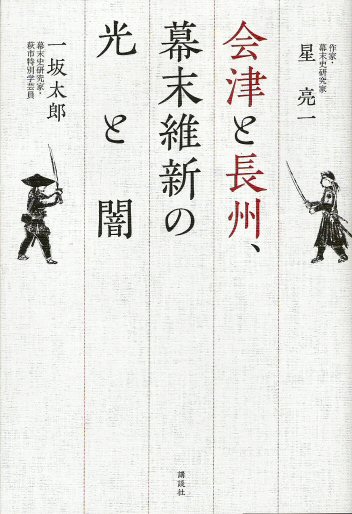 作家・
幕末史研究家
星亮一
会津と長州、
幕末維新の
光と闇
一坂太郎
幕末史研究家・
萩市特別学芸員
講談社